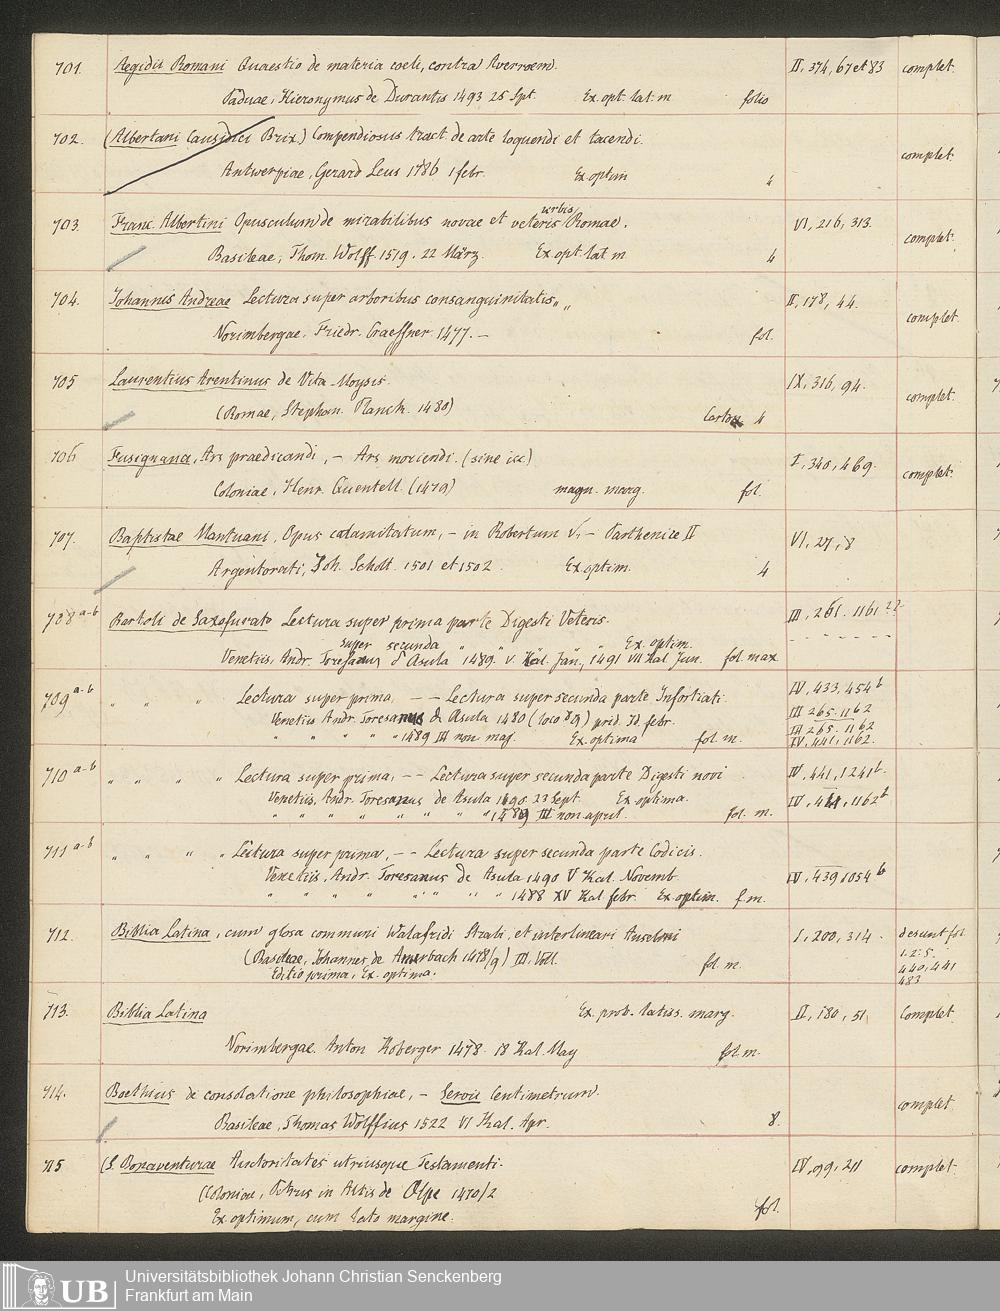 701. Aegidii Romani Quaestio de materia coeli, contra Averroem. II, 374, 67 et 83 complet.
Paduae, Hieronymus de Durantis 1493 25 Spt. Ex. opt. lat. m folio
702. (Albertani Causidici Brix.) Compendiosus tract. de arte loquendi et tacendi. complet.
Antwerpiae, Gerard Leus 1486 1 febr. Ex optim 4
703. Franc. Albertini Opusculum de mirabilibus novae et veteris urbis Romae. VI, 216, 313. complet.
Basileae, Thom. Wolff. 1519. 22 März. Ex opt. lat m 4
704. Johannis Andreae Lectura super arboribus consanguinitatis „ „ II, 178, 44. complet.
Norimbergae. Friedr. Craeffner 1477. – fol.
705 Laurentius Arentinus de Vita Moysis. IX, 316, 94. complet.
(Romae, Stephan. Planck. 1480) 4
706 Fusignana, Ars praedicandi, – Ars moriendi. I, 340, 469. complet.
Coloniae, Henr. Quentell. (1479) magn. marg. fol.
707. Baptistae Mantuani, Opus calamitatum, – in Robertum – Parthenice II VI, 27, 8
Argentorati, Joh. Schott. 1501 et 1502. Ex. optim. 4
708 a-b Bartoli de Saxofurato Lectura super prima parte Digesti Veteris. III, 261. 1161
super secunda „ „ „ „ Ex. optim.
Venetiis, Andr. Toresanus d'Asula 1489. V. Kal. Jan., 1491 VII Kal Jun. fol. max
709 a-b „ „ „ Lectura super prima, – – Lectura super secunda parte Infortiati. IV, 433, 454 b
Venetiis Andr. Toresanus de Asula 1480 (loco 89) prid. Id. febr. III 265. 1162
„ „ „ „ „ 1489 III non. maj. Ex. optima fol. m. III 265. 1162
IV, 441, 1162.
710 a-b „ „ „ „ Lectura super prima, – – Lectura super secunda parte Digesti novi IV, 441, 1241 b.
Venetiis, Andr. Toresanus de Asula 1490 23 Sept. Ex optima. IV, 441, 1162 b
„ „ „ „ „ „ „ „ 1489 III non april. fol. m.
711 a-b „ „ „ „ Lectura super prima, – – Lectura super secunda parte Codicis.
Venetiis, Andr. Toresanus de Asula 1490 V Kal. Novemb. IV, 439 1054 b
„ „ „ „ „ „ „ „ 1488 XV Kal. febr. Ex. optim. f. m.
712. Biblia Latina, cum glosa communi Walafridi Strabi, et interlineari Anselmi I, 200, 314. desunt fol.
(Basileae, Johannes de Amerbach 1478/9) III. Voll. fol. m. 1. 2. 5.
Editio prima, Ex. optima. 440, 441
483
713. Biblia Latina Ex. prob. latiss. marg. II, 180, 51 Complet.
Norimbergae. Anton Koberger 1478. 18 Kal. May fol. m.
714. Boethius de consolatione philosophiae, – Servii Centimetrum. complet.
Basileae, Thomas Wolffius 1522 VI Kal. Apr. 8.
715 (S. Bonaventurae Auctoritates utriusque Testamenti. IV, 99, 211 complet.
(Coloniae, Petrus in Altis de Olpe 1470/2
Ex. optimum, cum lato margine. fol.
UB
Universitätsbibliothek Johann Christian Senckenberg
Frankfurt am Main